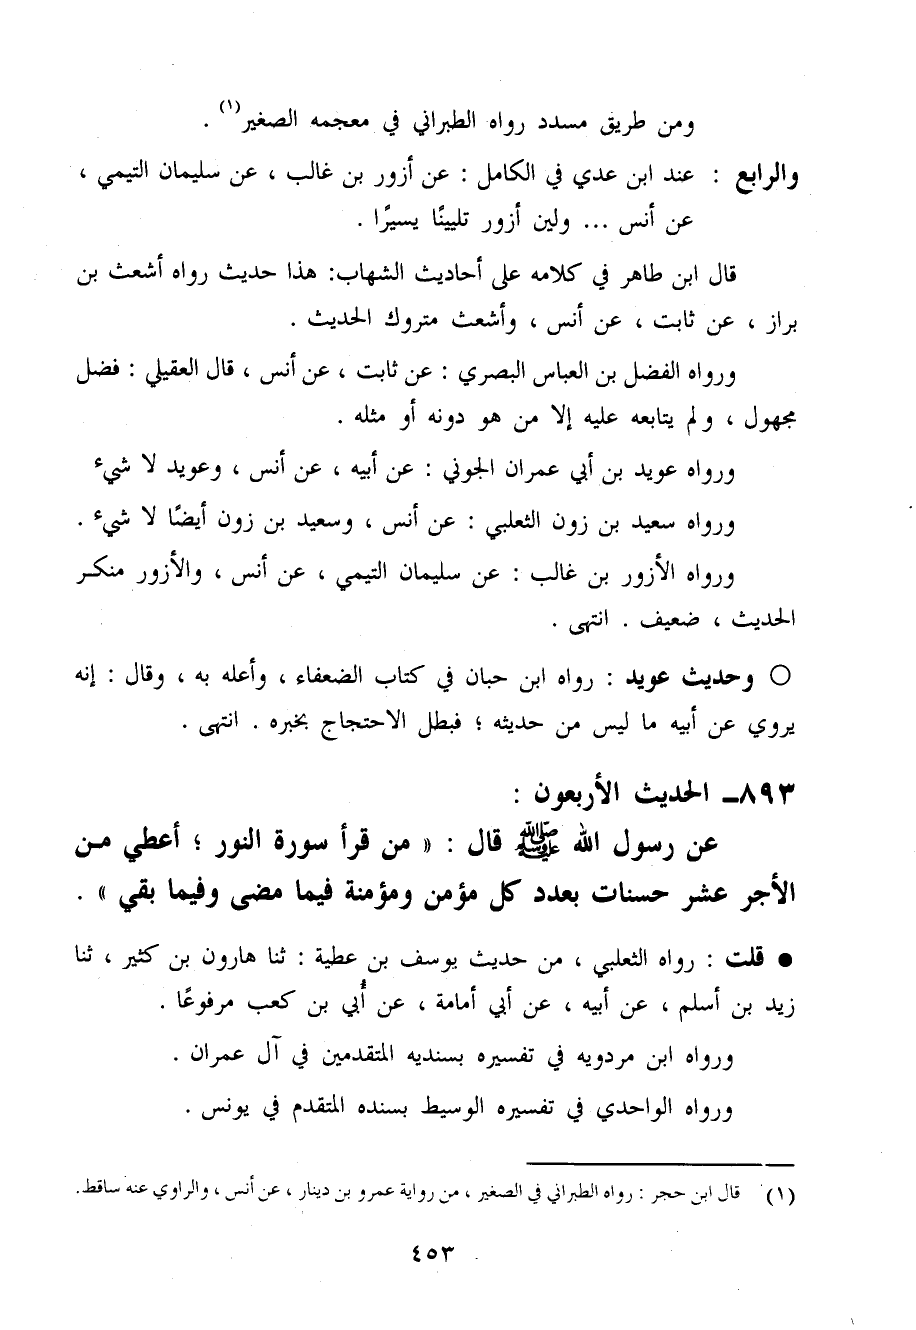 ومن طريق مسدد رواه الطبراني في معجمه الصغير(١) .
والرابع : عند ابن عدي في الكامل : عن أزور بن غالب ، عن سليمان التيمي ،
عن أنس ... ولين أزور تليينًا يسيرًا .
قال ابن طاهر في كلامه على أحاديث الشهاب: هذا حديث رواه أشعث بن
براز ، عن ثابت ، عن أنس ، وأشعث متروك الحديث .
ورواه الفضل بن العباس البصري : عن ثابت ، عن أنس ، قال العقيلي : فضل
مجهول ، ولم يتابعه عليه إلا من هو دونه أو مثله .
ورواه عويد بن أبي عمران الجوني : عن أبيه ، عن أنس ، وعويد لا شيء
ورواه سعيد بن زون الثعلبي : عن أنس ، وسعيد بن زون أيضًا لا شيء .
ورواه الأزور بن غالب : عن سليمان التيمي ، عن أنس ، والأزور منكر
الحديث ، ضعيف . انتهى .
○ وحديث عويد : رواه ابن حبان في كتاب الضعفاء ، وأعله به ، وقال : إنه
يروي عن أبيه ما ليس من حديثه ؛ فبطل الاحتجاج بخبره . انتهى .
٨٩٣ـ الحديث الأربعون :
عن رسول الله ﷺ قال : « من قرأ سورة النور ؛ أعطي من
الأجر عشر حسنات بعدد كل مؤمن ومؤمنة فيما مضى وفيما بقي » .
● قلت : رواه الثعلبي ، من حديث يوسف بن عطية : ثنا هارون بن كثير ، ثنا
زيد بن أسلم ، عن أبيه ، عن أبي أمامة ، عن أُبي بن كعب مرفوعًا .
ورواه ابن مردويه في تفسيره بسنديه المتقدمين في آل عمران .
ورواه الواحدي في تفسيره الوسيط بسنده المتقدم في يونس .
(١) قال ابن حجر : رواه الطبراني في الصغير ، من رواية عمرو بن دينار ، عن أنس ، والراوي عنه ساقط.
٤٥٣